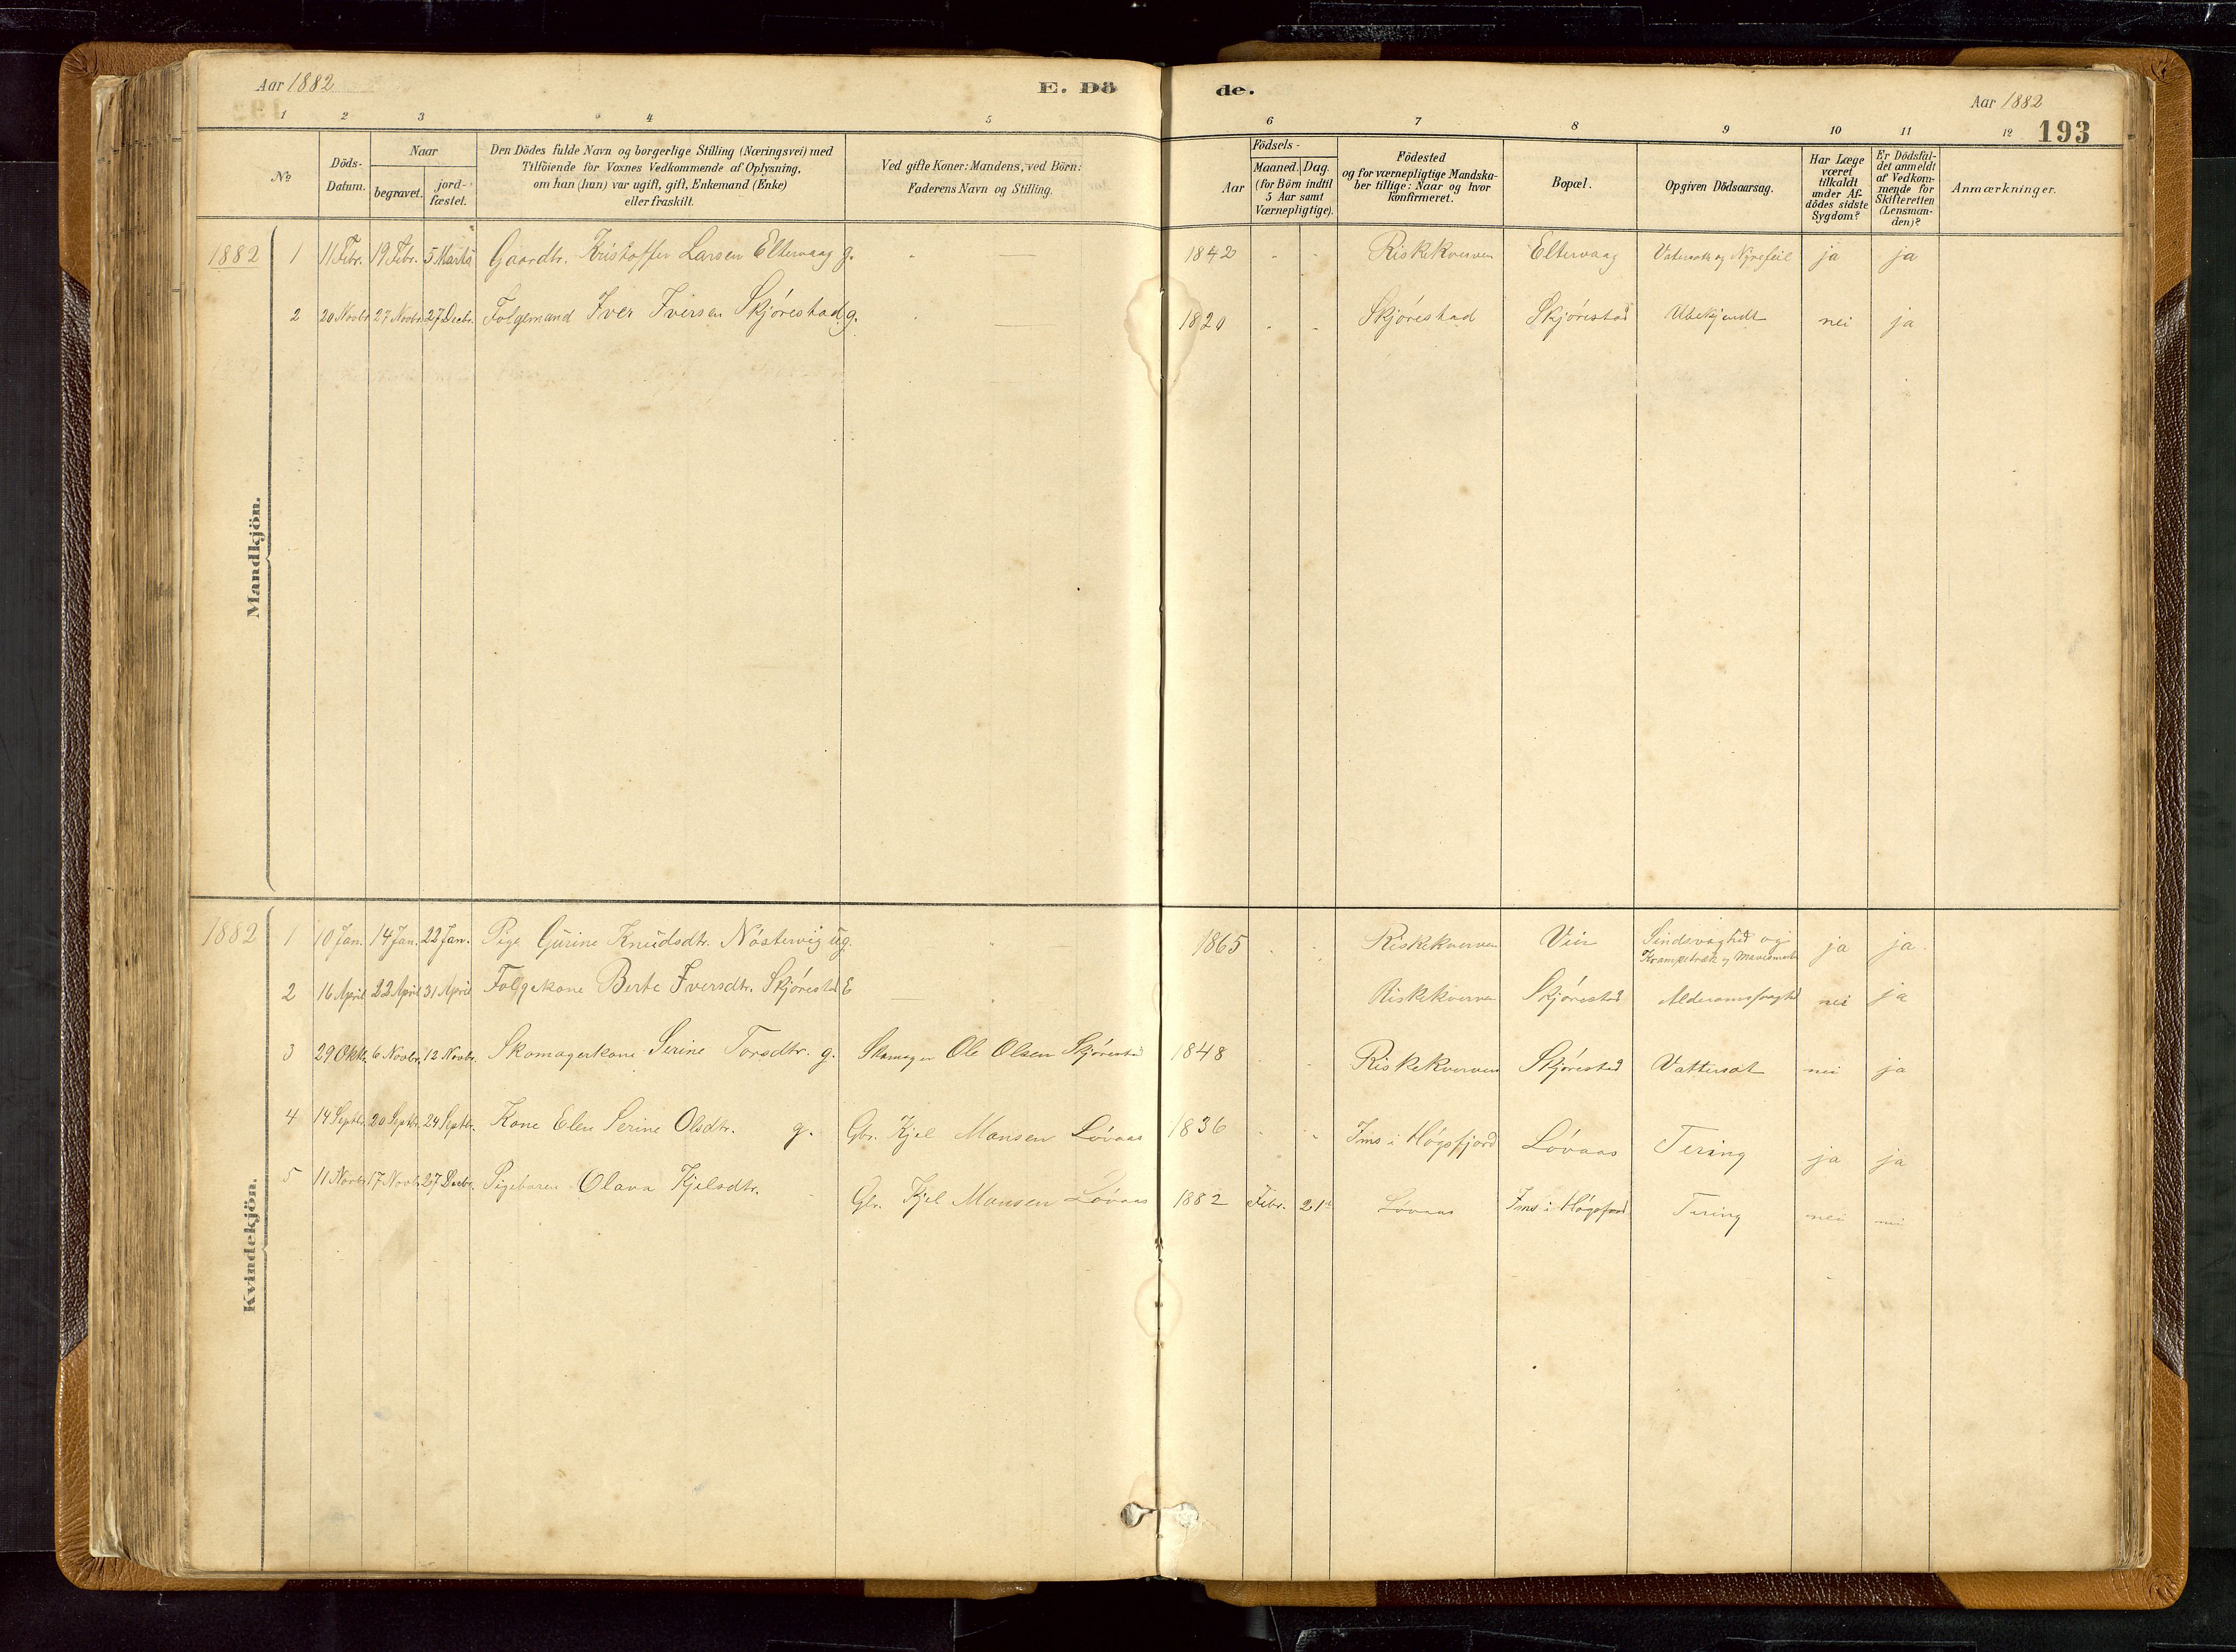 Aar 1882 E. Dö de. Aar 1882
193
1 2 3 4 5 6 7 8 9 10 11 12
No
Döds-Datum.
Naar
begravet.
jord-fæstet.
Den Dödes fulde Navn og borgerlige Stilling (Næringsvei) med
Tilföiende for Voxnes Vedkommende af Oplysning,
om han (hun) var ugift, gift, Enkemand (Enke)
eller fraskilt.
Ved gifte Koner: Mandens, ved Börn:
Faderens Navn og Stilling.
Födsels-
Aar
Maaned. Dag.
(for Börn indtil
5 Aar samt
Værnepligtige).
Födested
og for værnepligtige Mandska-
ber tillige: Naar og hvor
konfirmeret.
Bopæl.
Opgiven Dödsaarsag.
Har Læge
været
tilkaldt
under Af-
dödes sidste
Sygdom?
Er Dödsfal-
det anmeldt
af Vedkom-
mende for
Skifteretten
(Lensman-
den)?
Anmærkninger.
Mandkjön.
1882 1 11 Febr. 19 Febr. 5 Marts Gaardbr. Kristoffer Larsen Eltervaag g. 1842 Riskekverven Eltervaag Vatersot og Nyrefeil ja ja
2 20 Novbr 27 Novbr. 27 Decbr. Folgemand Iver Iversen Skjörestad g. 1820 Skjörestad Skjörestad Ubekjendt nei ja
Kvindekjön.
1882 1 10 Jan. 14 Jan. 22 Jan. Pige Gurine Knudsdtr. Nöstervig ug. 1865 Riskekverven Vier Sindsvaghed og
ja ja
2 16 April 22 April 31 April Folgekone Berte Iversdtr. Skjörestad E Riskekverven Skjörestad nei ja
3 29 Oktbr. 6 Novbr. 12 Novbr. Skomagerkone Serine Torsdtr. g. Skomager Ole Olsen Skjörestad 1848 Riskekverven Skjörestad Vattersot nei ja
4 14 Septbr. 20 Septbr. 24 Septbr. Kone Elen Serine Olsdtr. g. Gbr. Kjel Mansen Lövaas 1836 Ims i Högsfjord Lövaas Tering ja ja
5 11 Novbr. 17 Novbr. 27 Decbr. Pigebarn Olava Kjelsdtr. Gbr. Kjel Mansen Lövaas 1882 Febr. 21 Lövaas Ims i Högsfjord Tering nei nei